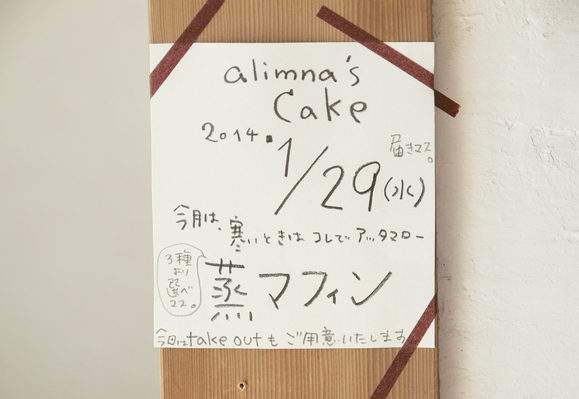 alimna's
Cake
2014.1/29(水)
届きマス。
今月は、寒いときは コレで アッタマロー
3種
より
選べ
マス。
蒸マフィン
今回はtake outも ご用意いたします